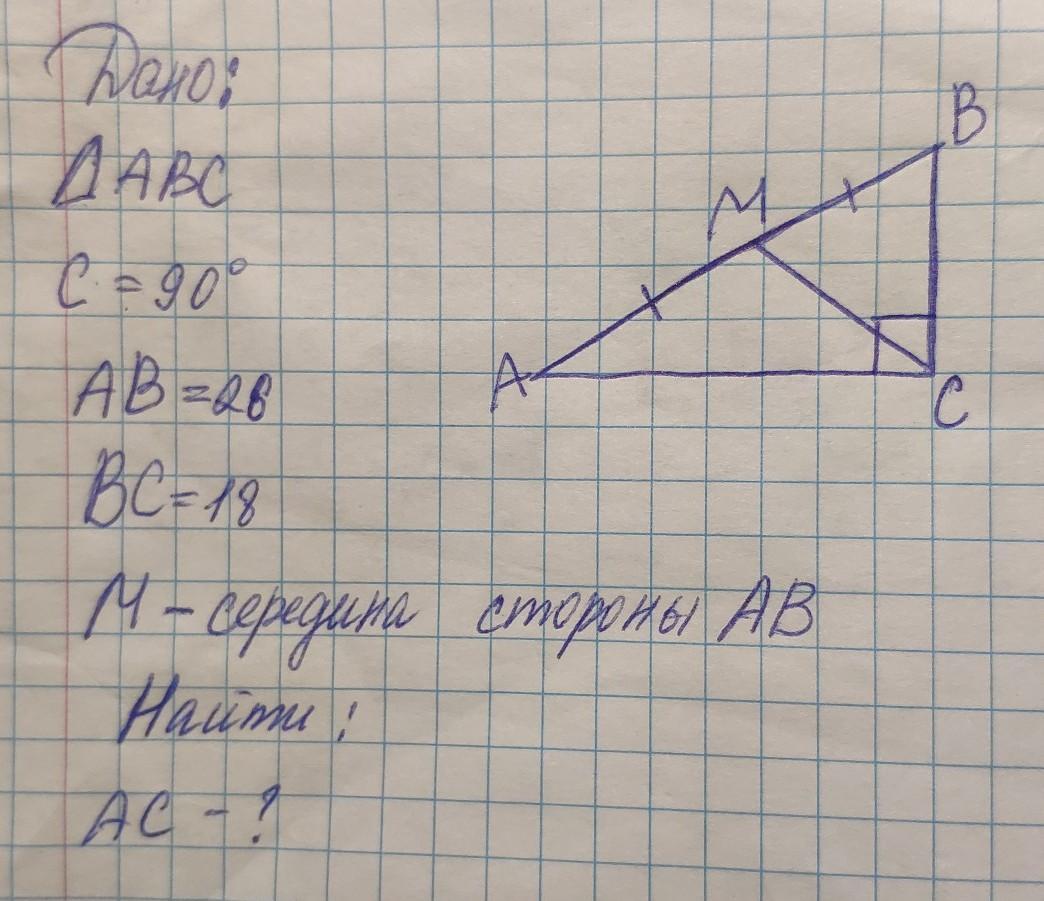 Дано:
Δ ABC
C = 90°
AB = 26
BC = 18
M - середина стороны AB
Найти:
AC - ?
B
M
A
C